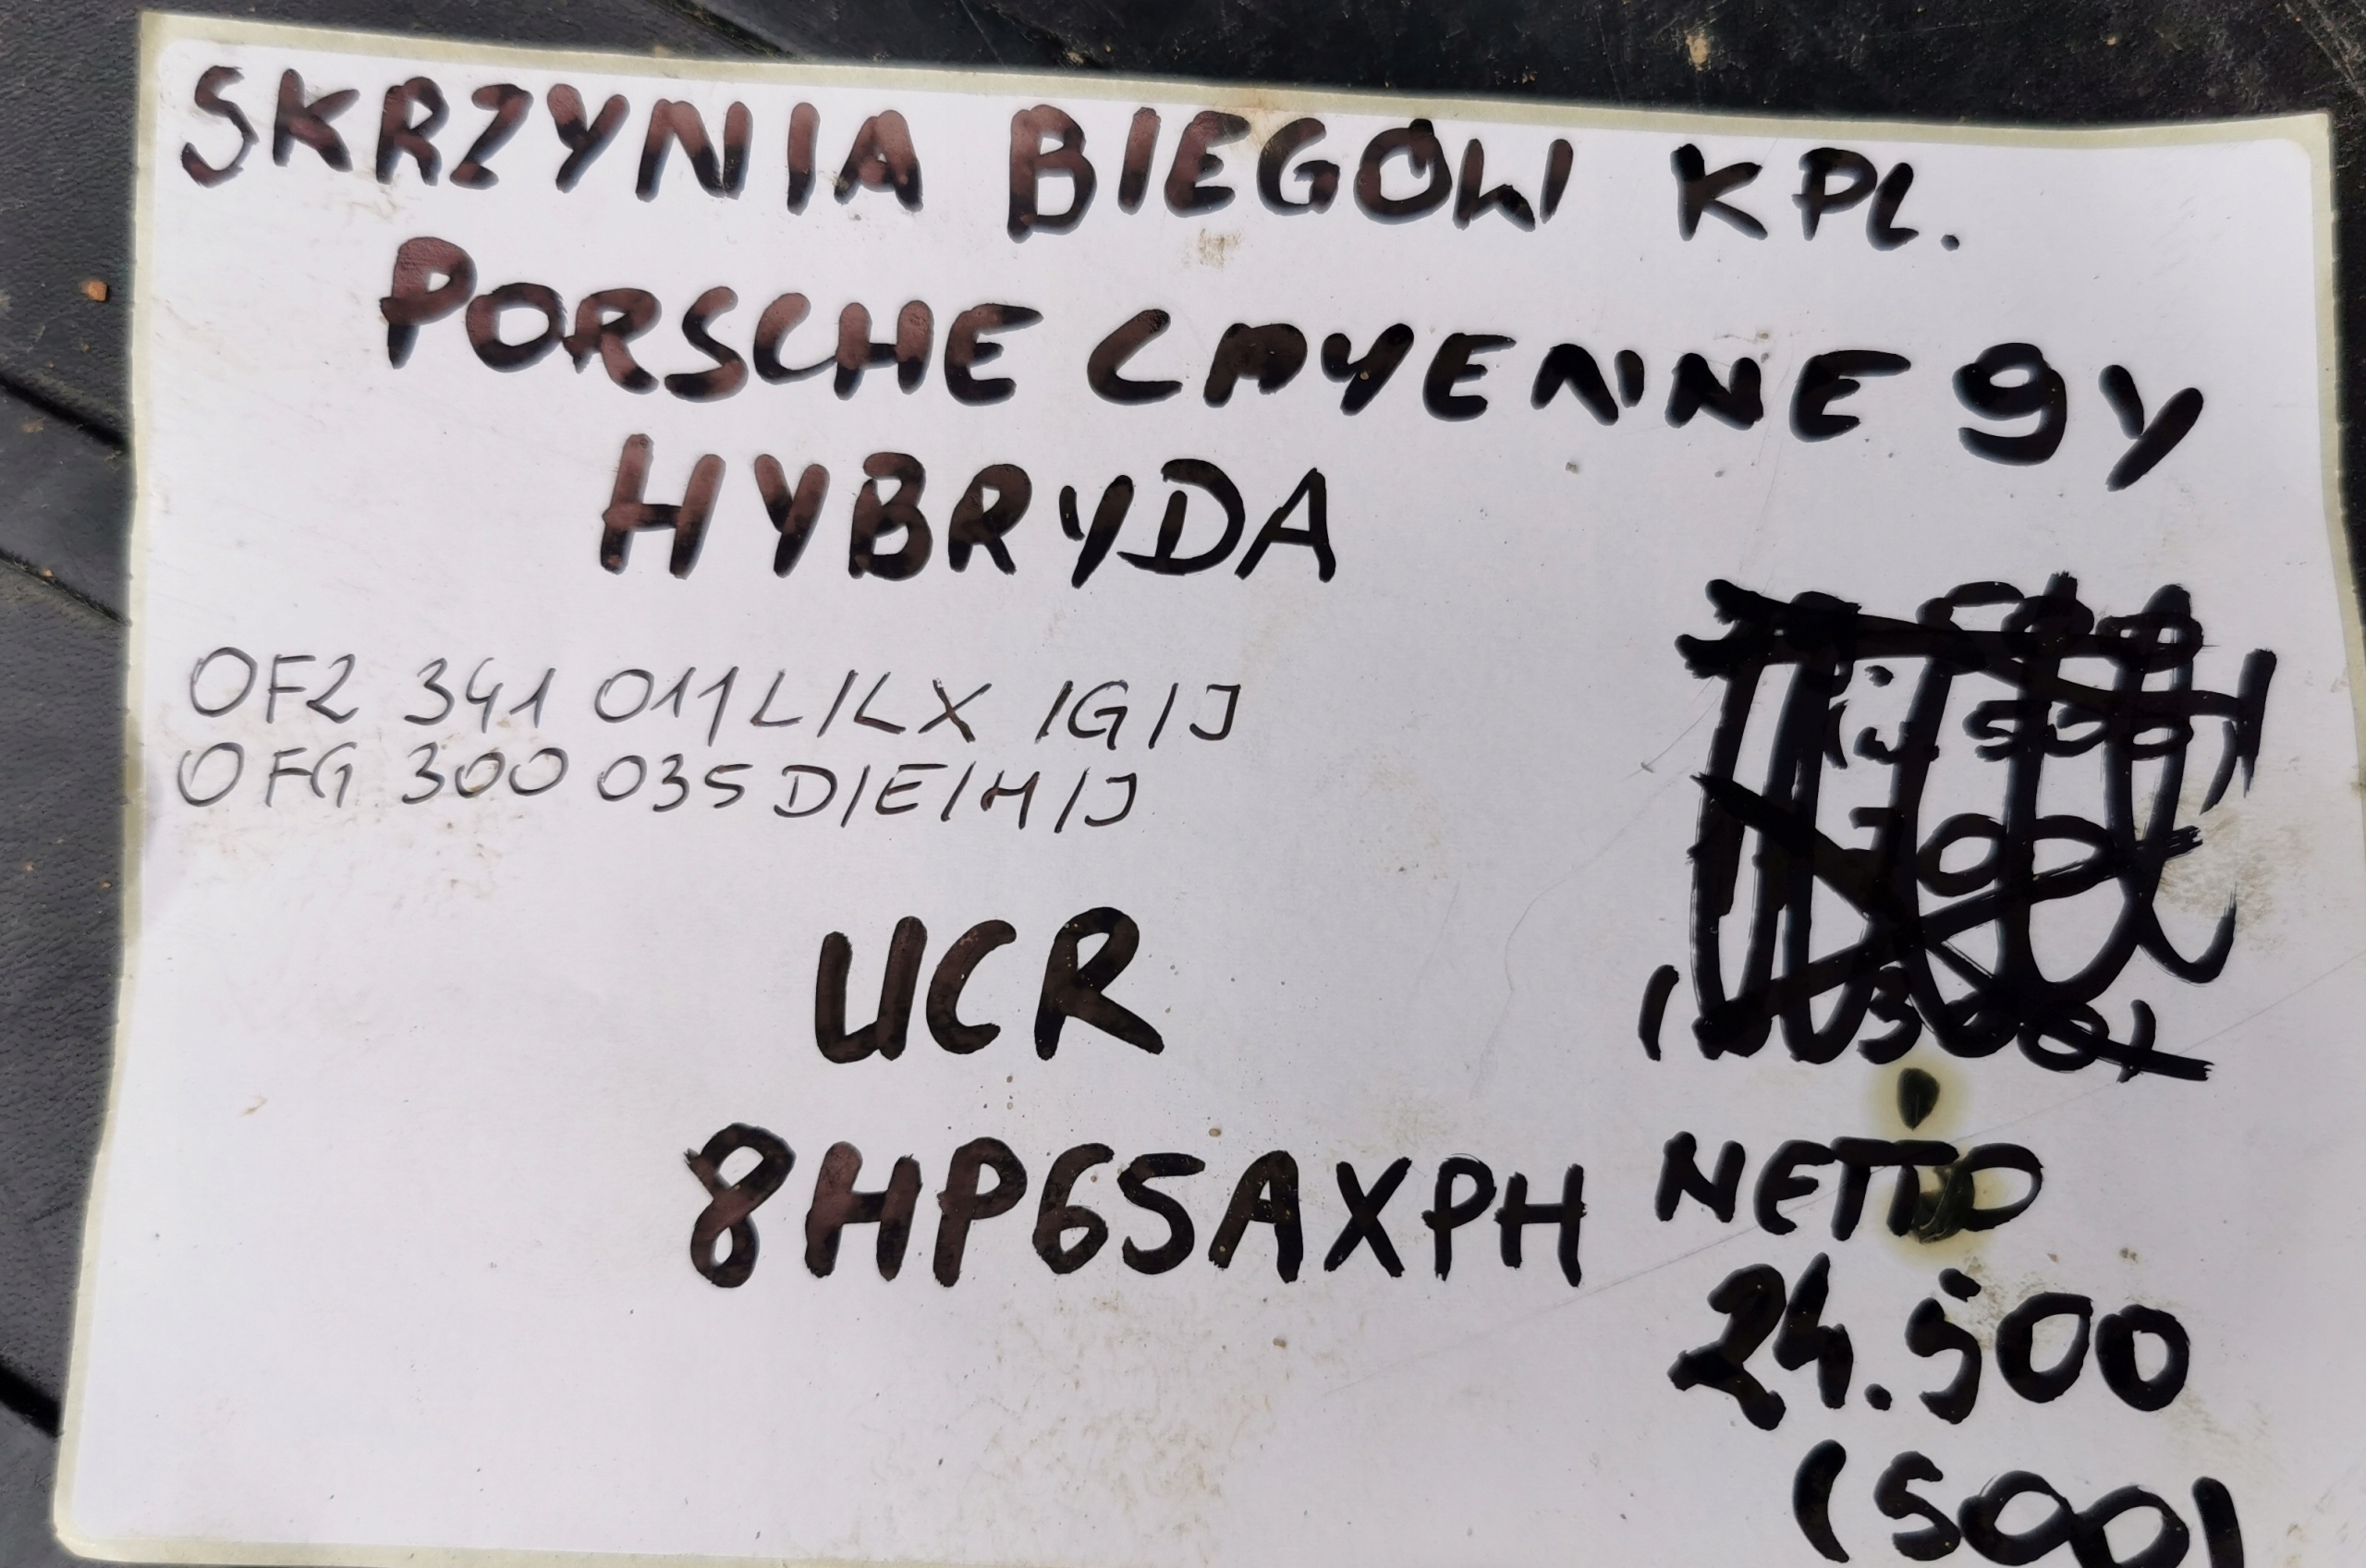 SKRZYNIA BIEGÓW KPL.
PORSCHE CAYENNE 9Y
HYBRYDA
0F2 341 011 L/LX /G/J
0FG 300 035 D/E/H/J
UCR
8HP65AXPH
NETTO
24.500
(500)